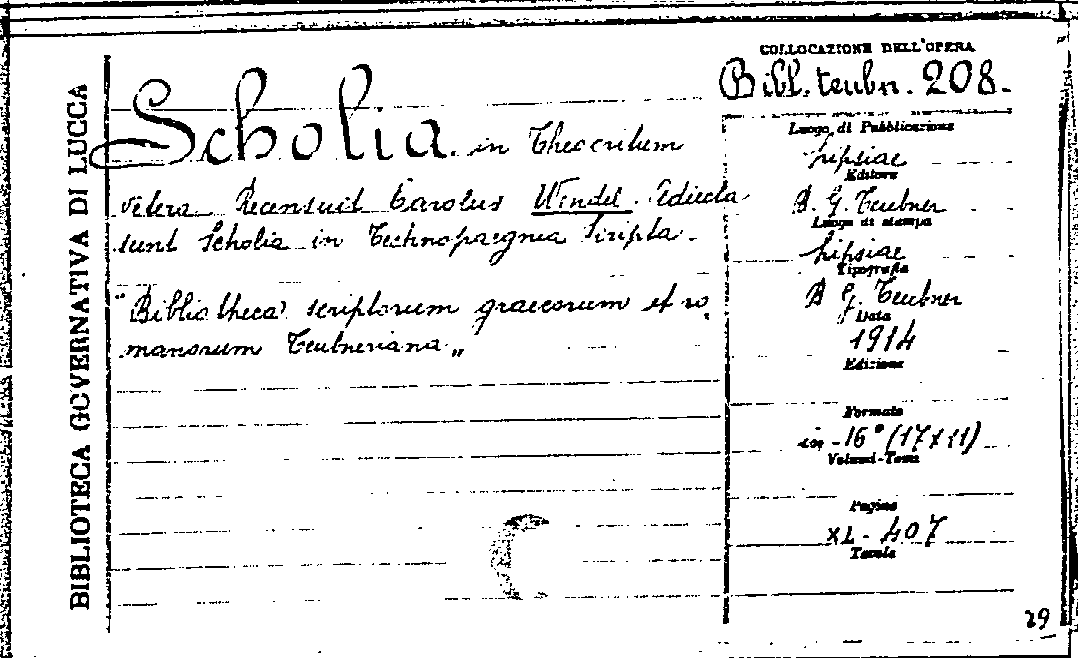 BIBLIOTECA GOVERNATIVA DI LUCCA
Scholia in Theocritum
vetera Recensuit Carolus Wendel. Adiecta
sunt Scholia in Technopaegnia scripta.
"Bibliotheca scriptorum graecorum et ro,
manorum Teubneriana„
COLLOCAZIONE DELL'OPERA
Bibl. teubn. 208.
Luogo di Pubblicazione
Lipsiae
Editore
B. G. Teubner
Luogo di stampa
Lipsiae
Tipografia
B G. Teubner
Data
1914
Edizione
Formato
in-16° (17x11)
Volumi-Tomi
Pagine
XL-407
Tavole
29